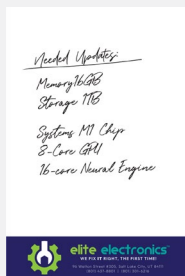 Needed Updates:
Memory 16GB
Storage 1TB
Systems M1 Chip
8-Core GPU
16-core Neural Engine
elite electronics
WE FIX IT RIGHT, THE FIRST TIME!